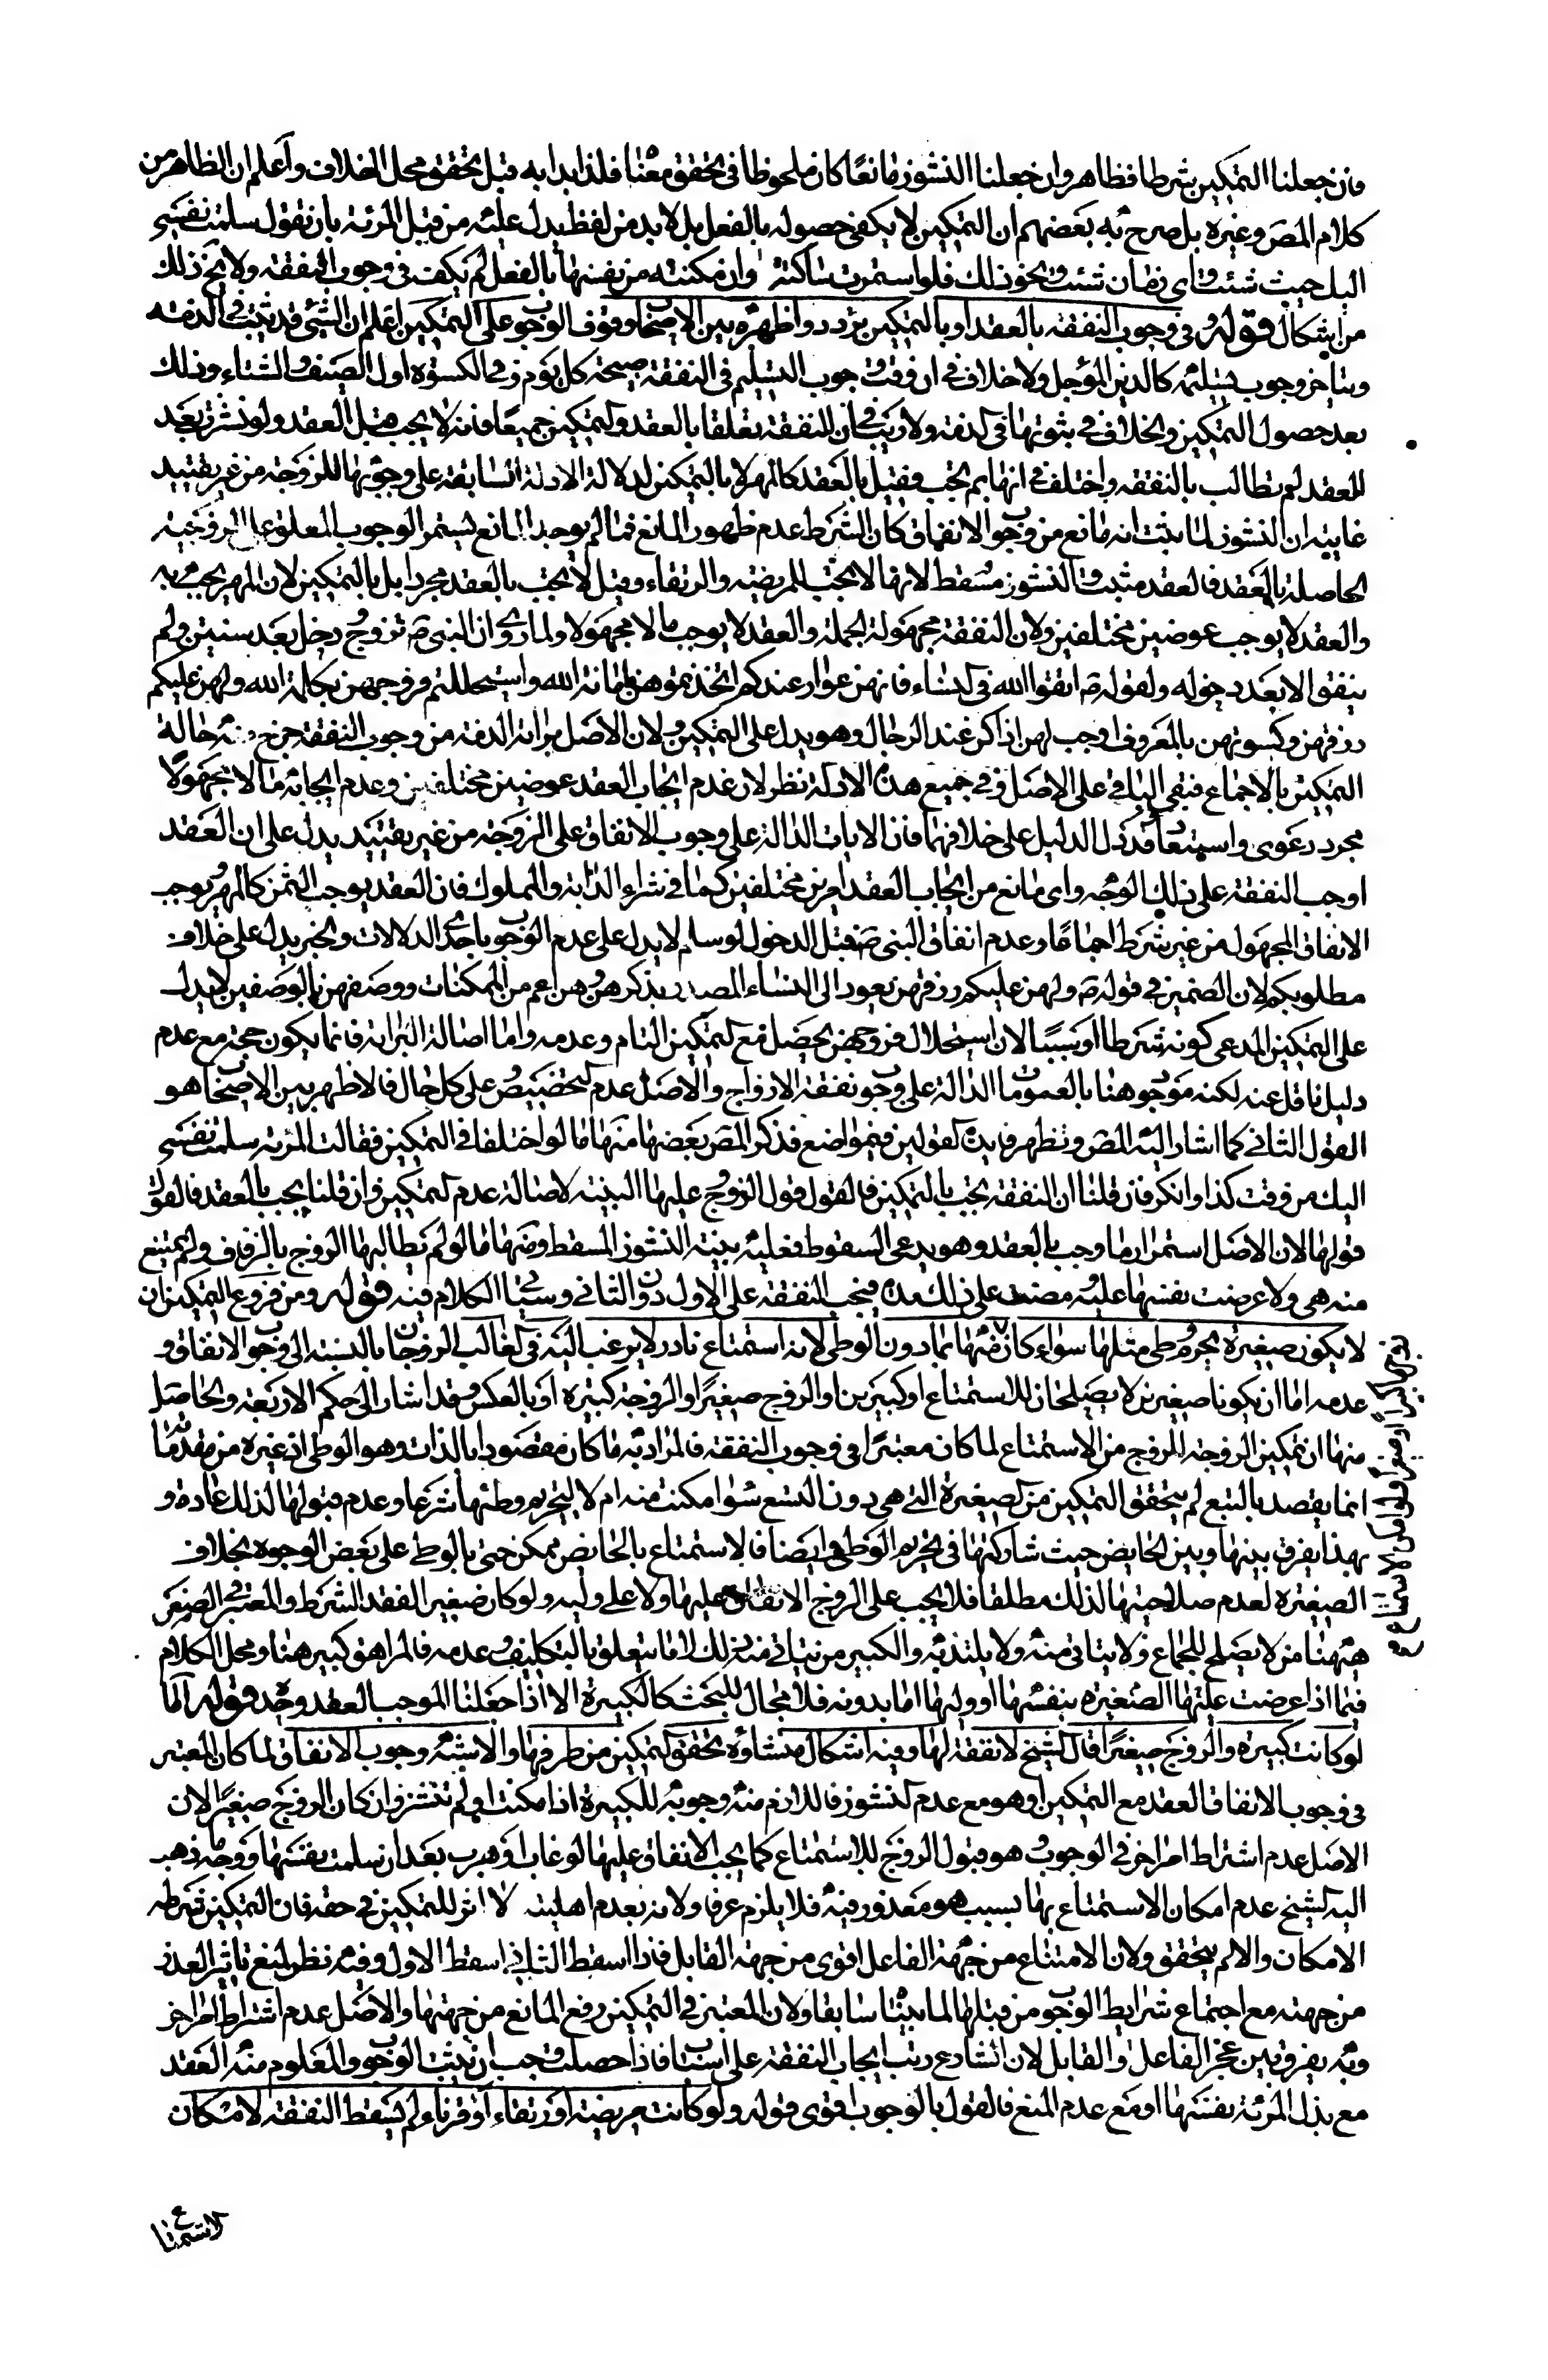 فان جعلنا التمكين شرطا فظاهر وان جعلنا النشوز مانعا كان ملحوظا في تحقق معناه فلذا بدا به قبل تحقق محل الخلاف واعلم ان الظاهر من
كلام المص وغيره بل صرح به بعضهم ان التمكين لا يكفي حصوله بالفعل بل لا بد من لفظ يدل عليه من قبل المرئة بان تقول سلمت نفسي
اليك حيث شئت واي زمان شئت ونحو ذلك فلو استمرت ساكتة وان مكنته من نفسها بالفعل لم يكف في وجوب النفقة ولا يخ ذلك
من اشكال قوله وفي وجوب النفقة بالعقد او بالتمكين تردد واظهره بين الاصحاب وقوف الوجوب على التمكين اعلم ان الشئ قد يثبت في الذمة
ويتاخر وجوب تسليمه كالدين المؤجل ولا خلاف في ان وقت وجوب التسليم في النفقة صبيحة كل يوم وفي الكسوة اول الصيف والشتاء وذلك
بعد حصول التمكين والخلاف في ثبوتها في الذمة ولا ريب في ان للنفقة تعلقا بالعقد والتمكين جميعا فانه لا يجب قبل العقد ولو نشزت بعد
العقد لم تطالب بالنفقة واختلف في انها بم تجب فقيل بالعقد كالمهر لا بالتمكين لدلالة الادلة السابقة على وجوبها للزوجة من غير تقييد
غايته ان النشوز لما ثبت انه مانع من وجوب الانفاق كان الشرط عدم ظهور المانع فما لم يوجد المانع يستمر الوجوب المعلق على الزوجية
الحاصلة بالعقد فالعقد مثبت والنشوز مسقط لانها لا تجب للمريضة والرتقاء وقيل لا تجب بالعقد مجردا بل بالتمكين لان المهر يجب به
والعقد لا يوجب عوضين مختلفين ولان النفقة مجهولة الجملة والعقد لا يوجب مالا مجهولا ولما روى ان النبي ص تزوج ودخل بعد سنتين ولم
ينفق الا بعد دخوله ولقوله ص اتقوا الله في النساء فانهن عوار عندكم اتخذتموهن بامانة الله واستحللتم فروجهن بكلمة الله ولهن عليكم
رزقهن وكسوتهن بالمعروف اوجب لهن اذا كن عند الرجال وهو يدل على التمكين ولان الاصل براءة الذمة من وجوب النفقة خرج منه حالة
التمكين بالاجماع فبقي الباقي على الاصل وفي جميع هذه الادلة نظر لان عدم ايجاب العقد عوضين مختلفين وعدم ايجابه مالا مجهولا
مجرد دعوى واستبعاد قد دل الدليل على خلافهما فان الايات الدالة على وجوب الانفاق على الزوجة من غير تقييد يدل على ان العقد
اوجب النفقة على ذلك الوجه واي مانع من ايجاب العقد امرين مختلفين كما في شراء الدابة والمملوك فان العقد يوجب الثمن كالمهر ويوجب
الانفاق المجهول من غير شرط اجماعا وعدم انفاق النبي ص قبل الدخول لو سلم لا يدل على عدم الوجوب باحدى الدلالات والخبر يدل على خلاف
مطلوبكم لان الضمير في قوله ص ولهن عليكم رزقهن يعود الى النساء المصدر بذكرهن وهن اعم من الممكنات ووصفهن بالوصفين لا يدل
على التمكين المدعى كونه شرطا او سببا لان استحلال فروجهن يحصل مع التمكين التام وعدمه واما اصالة البراءة فانما يكون حجة مع عدم
دليل ناقل عنه لكنه موجود هنا بالعمومات الدالة على وجوب نفقة الازواج والاصل عدم التخصيص على كل حال فالاظهر بين الاصحاب هو
القول الثاني كما اشار اليه المص وتظهر فايدة القولين في مواضع فذكر المص بعضها منها ما لو اختلفا في التمكين فقالت المرئة سلمت نفسي
اليك من وقت كذا وانكر فان قلنا ان النفقة تجب بالتمكين فالقول قول الزوج وعليها البينة لاصالة عدم التمكين وان قلنا يجب بالعقد فالقول
قولها لان الاصل استمرار ما وجب بالعقد وهو يدعى السقوط فعليه بينة النشوز المسقط ومنها ما لو لم يطالبها الزوج بالزفاف ولم يمتنع
منه هي ولا عرضت نفسها عليه ومضت على ذلك مدة فيجب النفقة على الاول دون الثاني وسياتي الكلام فيه قوله ومن فروع التمكين ان
لا يكون صغيرة يحرم وطى مثلها سواء كان زوجها كبيرا او صغيرا ولو امكن الاستمتاع منها بما دون الوطى لانه استمتاع نادر لا يرغب اليه في الغالب الزوجان بالنسبة الى وجوب الانفاق و
عدمه اما ان يكونا صغيرين لا يصلحان للاستمتاع او كبيرين او الزوج صغيرا والزوجة كبيرة او بالعكس وقد اشار الى حكم الاربعة والحاصل
منها ان تمكين الزوجة الزوج من الاستمتاع لما كان معتبرا في وجوب النفقة فالمراد به ما كان مقصودا بالذات وهو الوطى اذ غيره من مقدماته
انما يقصد بالتبع لم يتحقق التمكين من الصغيرة التي هي دون التسع سواء مكنت منه ام لا لتحريم وطئها شرعا وعدم قبولها لذلك عادة و
بهذا يفرق بينها وبين الحايض حيث شاركتها في تحريم الوطى ايضا فالاستمتاع بالحايض ممكن حتى بالوطى على بعض الوجوه بخلاف
الصغيرة لعدم صلاحيتها لذلك مطلقا فلا يجب على الزوج الانفاق عليها ولا على وليه ولو كان صغيرا لفقد الشرط والمعتبر في الصغر
هيهنا من لا يصلح للجماع ولا يتاتى منه ولا يلتذ به والكبير من يتاتى منه ذلك لا ما يتعلق بالتكليف وعدمه فالمراهق كبير هنا ومحل الكلام
فيما اذا عرضت عليها الصغيرة بنفسها او وليها اما بدونه فلا مجال للبحث كالكبيرة الا اذا جعلنا الموجب العقد وحده قوله اما
لو كانت كبيرة والزوج صغيرا قال الشيخ لا نفقة لها وفيه اشكال منشاؤه تحقق التمكين من طرفها والاشبه وجوب الانفاق لما كان المعتبر
في وجوب الانفاق العقد مع التمكين او هو مع عدم النشوز فاللازم منه وجوبه للكبيرة اذا مكنت او لم تنشز وان كان الزوج صغيرا لان
الاصل عدم اشتراط امر اخر في الوجوب وهو قبول الزوج للاستمتاع كما يجب الانفاق عليها لو غاب او هرب بعد ان سلمت نفسها ووجه ما ذهب
اليه الشيخ عدم امكان الاستمتاع بها بسبب هو معذور فيه فلا يلزم عرفا ولانه بعدم اهليته لا اثر للتمكين في حقه فان التمكين شرطه
الامكان والا لم يتحقق ولان الامتناع من جهة الفاعل اقوى من جهة القابل فاذا اسقط الثاني اسقط الاول وفيه نظر لمنع تاثير العذر
من جهته مع اجتماع شرايط الوجوب من قبلها لما بيناه سابقا ولان المعتبر في التمكين رفع المانع من جهتها والاصل عدم اشتراط امر اخر
وبه يفرق بين عجز الفاعل والقابل لان الشارع رتب ايجاب النفقة على اسباب فاذا حصلت وجب ان يثبت الوجوب والمعلوم منه العقد
مع بذل المرئة نفسها او مع عدم المنع فالقول بالوجوب اقوى قوله ولو كانت مريضة او رتقاء او قرناء لم يسقط النفقة لامكان
الاستمتاع